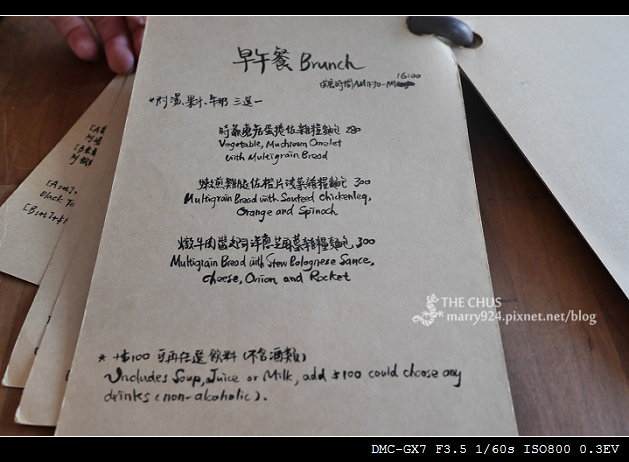 早午餐 Brunch
供應時間AM11:30-PM 16:00
*附湯.果汁.牛奶 三選一
時蔬蘑菇蛋捲佐雜糧麵包 280
Vegetable, Mushroom Omolet
with Multigrain Bread
嫩煎雞腿佐橙片菠菜雜糧麵包 300
Multigrain Bread with Sauteed Chickenleg,
Orange and Spinach
燉牛肉醬起司洋蔥芝麻菜雜糧麵包 300
Multigrain Bread with Stew Bolognese Sauce,
cheese, Onion and Rocket
* +$100 可再任選飲料(不含酒類)
Includes Soup, Juice or Milk, add $100 could choose any
drinks (non-alcoholic).
[A set]
[B set]
THE CHUS
marry924.pixnet.net/blog
DMC-GX7 F3.5 1/60s ISO800 0.3EV